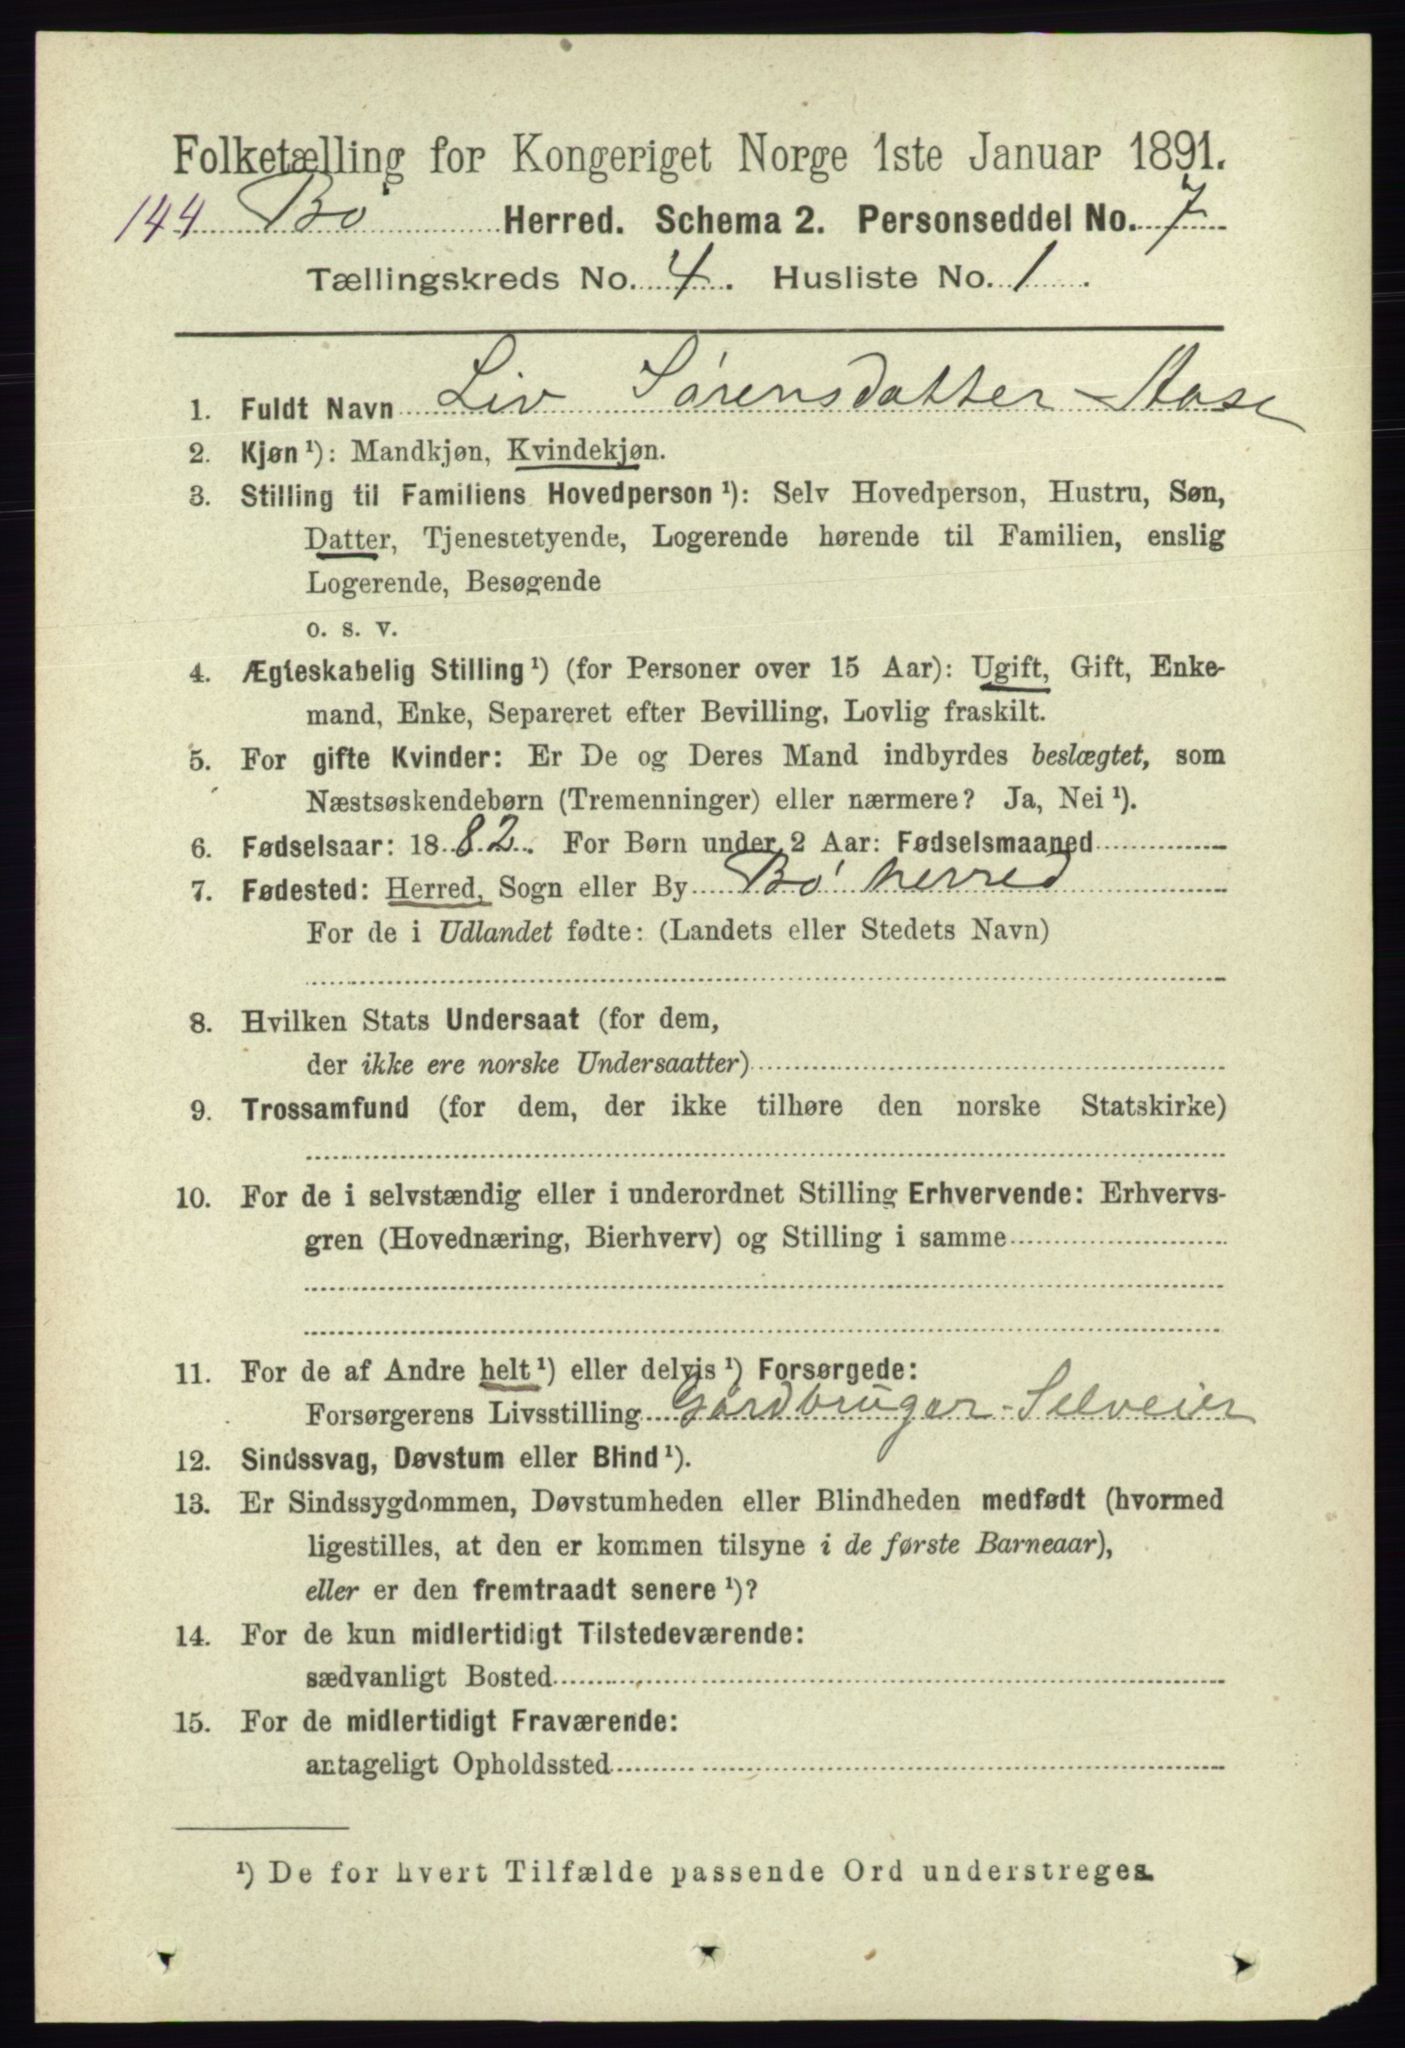 Folketælling for Kongeriget Norge 1ste Januar 1891.
144 Bø Herred. Schema 2. Personseddel No. 7
Tællingskreds No. 4. Husliste No. 1.
1. Fuldt Navn Liv Sørensdatter
2. Kjøn ¹): Mandkjøn, Kvindekjøn.
3. Stilling til Familiens Hovedperson ¹): Selv Hovedperson, Hustru, Søn,
Datter, Tjenestetyende, Logerende hørende til Familien, enslig
Logerende, Besøgende
o. s. v.
4. Ægteskabelig Stilling ¹) (for Personer over 15 Aar): Ugift, Gift, Enke-
mand, Enke, Separeret efter Bevilling, Lovlig fraskilt.
5. For gifte Kvinder: Er De og Deres Mand indbyrdes beslægtet, som
Næstsøskendebørn (Tremenninger) eller nærmere? Ja, Nei ¹).
6. Fødselsaar: 1882. For Børn under 2 Aar: Fødselsmaaned
7. Fødested: Herred, Sogn eller By Bø herred
For de i Udlandet fødte: (Landets eller Stedets Navn)
8. Hvilken Stats Undersaat (for dem,
der ikke ere norske Undersaatter)
9. Trossamfund (for dem, der ikke tilhøre den norske Statskirke)
10. For de i selvstændig eller i underordnet Stilling Erhvervende: Erhvervs-
gren (Hovednæring, Bierhverv) og Stilling i samme
11. For de af Andre helt ¹) eller delvis ¹) Forsørgede:
Forsørgerens Livsstilling Gårdbruger-Selveier
12. Sindssvag, Døvstum eller Blind ¹).
13. Er Sindssygdommen, Døvstumheden eller Blindheden medfødt (hvormed
ligestilles, at den er kommen tilsyne i de første Barneaar),
eller er den fremtraadt senere ¹)?
14. For de kun midlertidigt Tilstedeværende:
sædvanligt Bosted
15. For de midlertidigt Fraværende:
antageligt Opholdssted
¹) De for hvert Tilfælde passende Ord understreges.